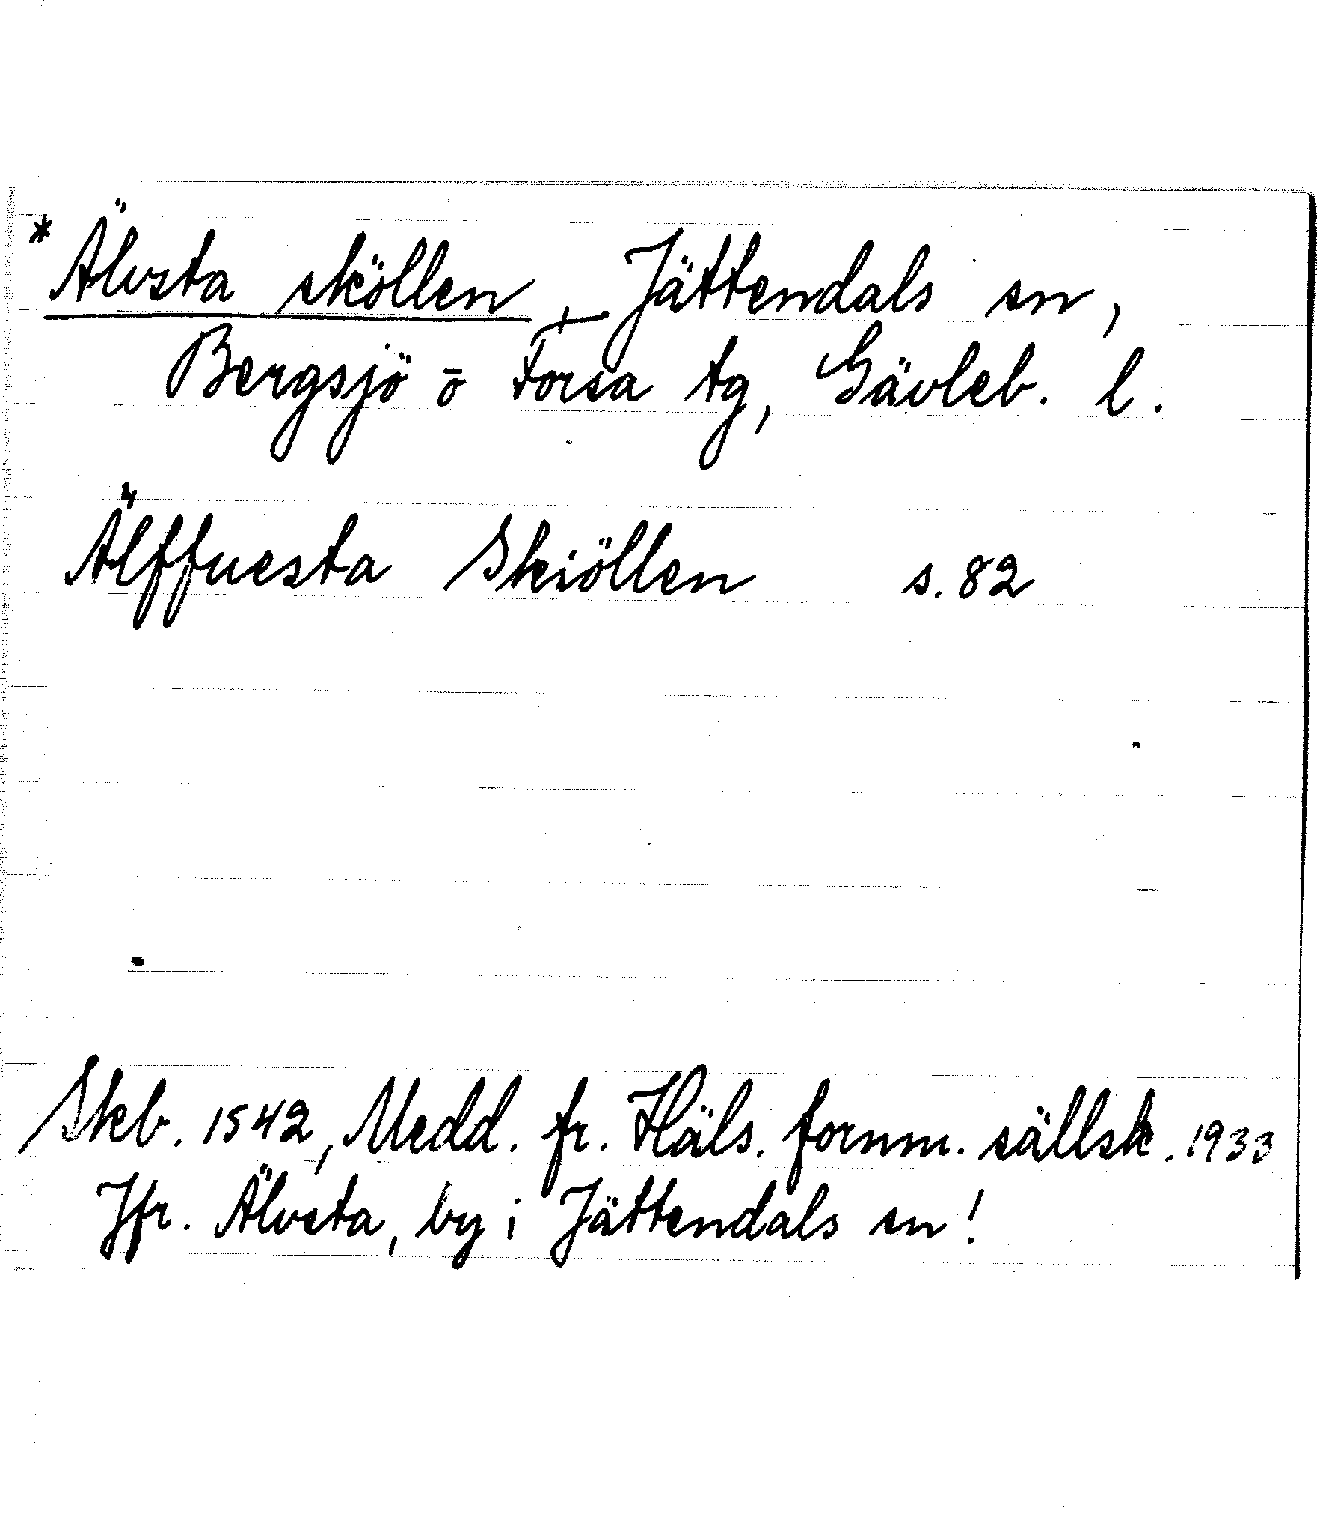 * Älvsta sköllen, Jättendals sn,
Bergsjö o Forsa tg, Gävleb. l.
Älffuesta Skiöllen s. 82
Skb. 1542, Medd. fr. Häls. fornm. sällsk. 1933
Jfr. Älvsta, by i Jättendals sn!